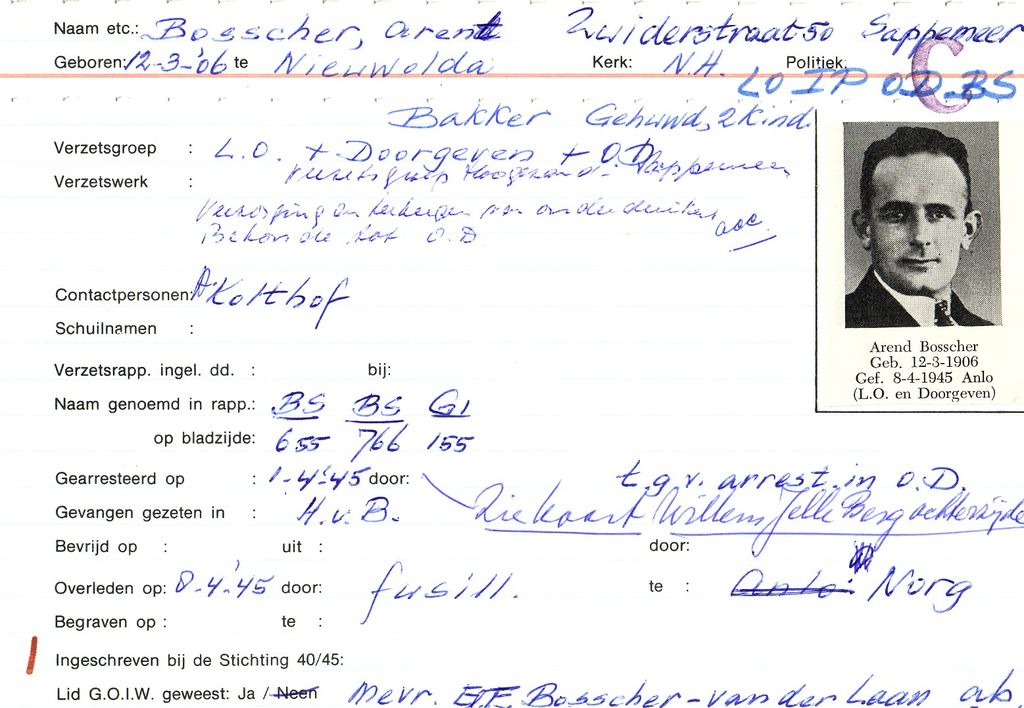 Naam etc.: Bosscher, Arend Zuiderstraat 50 Sappemeer
Geboren: 12-3-'06 te Nieuwolda Kerk: N.H. Politiek:
LO IP O.D. BS
C
Bakker Gehuwd, 2 kind.
Verzetsgroep : L.O. + Doorgeven + O.D.
Verzetsgroep Hoogezand-Sappemeer
Verzetswerk :
Verzorging en van onderduikers
Behoorde tot O.D.
Contactpersonen: Kolthof
Schuilnamen :
Arend Bosscher
Geb. 12-3-1906
Gef. 8-4-1945 Anlo
(L.O. en Doorgeven)
Verzetsrapp. ingel. dd. : bij:
Naam genoemd in rapp.: BS BS G1
op bladzijde: 655 766 155
Gearresteerd op : 1-4-'45 door: t.g.v. arrest. in O.D.
Gevangen gezeten in : H.v.B. Zie kaart Willem Jelle Berg achterzijde
Bevrijd op : uit : door:
Overleden op: 8-4-'45 door: fusill. te : Anlo Norg
Begraven op : te :
Ingeschreven bij de Stichting 40/45:
Lid G.O.I.W. geweest: Ja / Neen Mevr. E.T.E. Bosscher-van der Laan